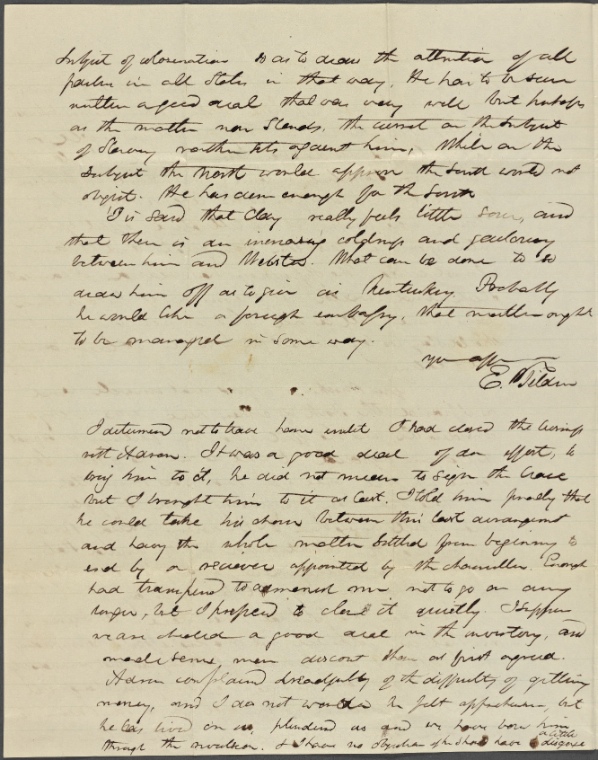 Subject of observation so as to draw the attention of all
parties in all States in that way. He has to be sure
written a good deal that was very well but perhaps
as the matter now stands, the current on the subject
of Slavery rather sets against him, While on the
subject the North would approve the South would not
object. He has done enough for the South
It is said that Clay really feels little sour, and
that there is an increasing coldness and jealousy
between him and Webster. What can be done to so
draw him off as to give us Kentucky Probably
he would like a foreign embassy, that matter ought
to be managed in some way.
E. Tilden
I determined not to leave home until I had closed the
with Adram. It was a good deal of an effort, to
bring him to it, he did not mean to sign the lease
but I brought him to it at last. I told him frankly that
he could take his choice between this last arrangement
and having the whole matter settled from beginning to
end by a receiver appointed by the chancellor. Enough
had transpired to admonish me, not to go on any
longer, but I hoped to close it quietly. I suppose
we are cheated a good deal in the inventory, and
made some more discount than at first agreed.
complains dreadfully of the difficulty of getting
money, and I do not wonder he felt apprehensive, but
he has lived on us, plundered us and we have borne him
through the I have no objection if he should have a little